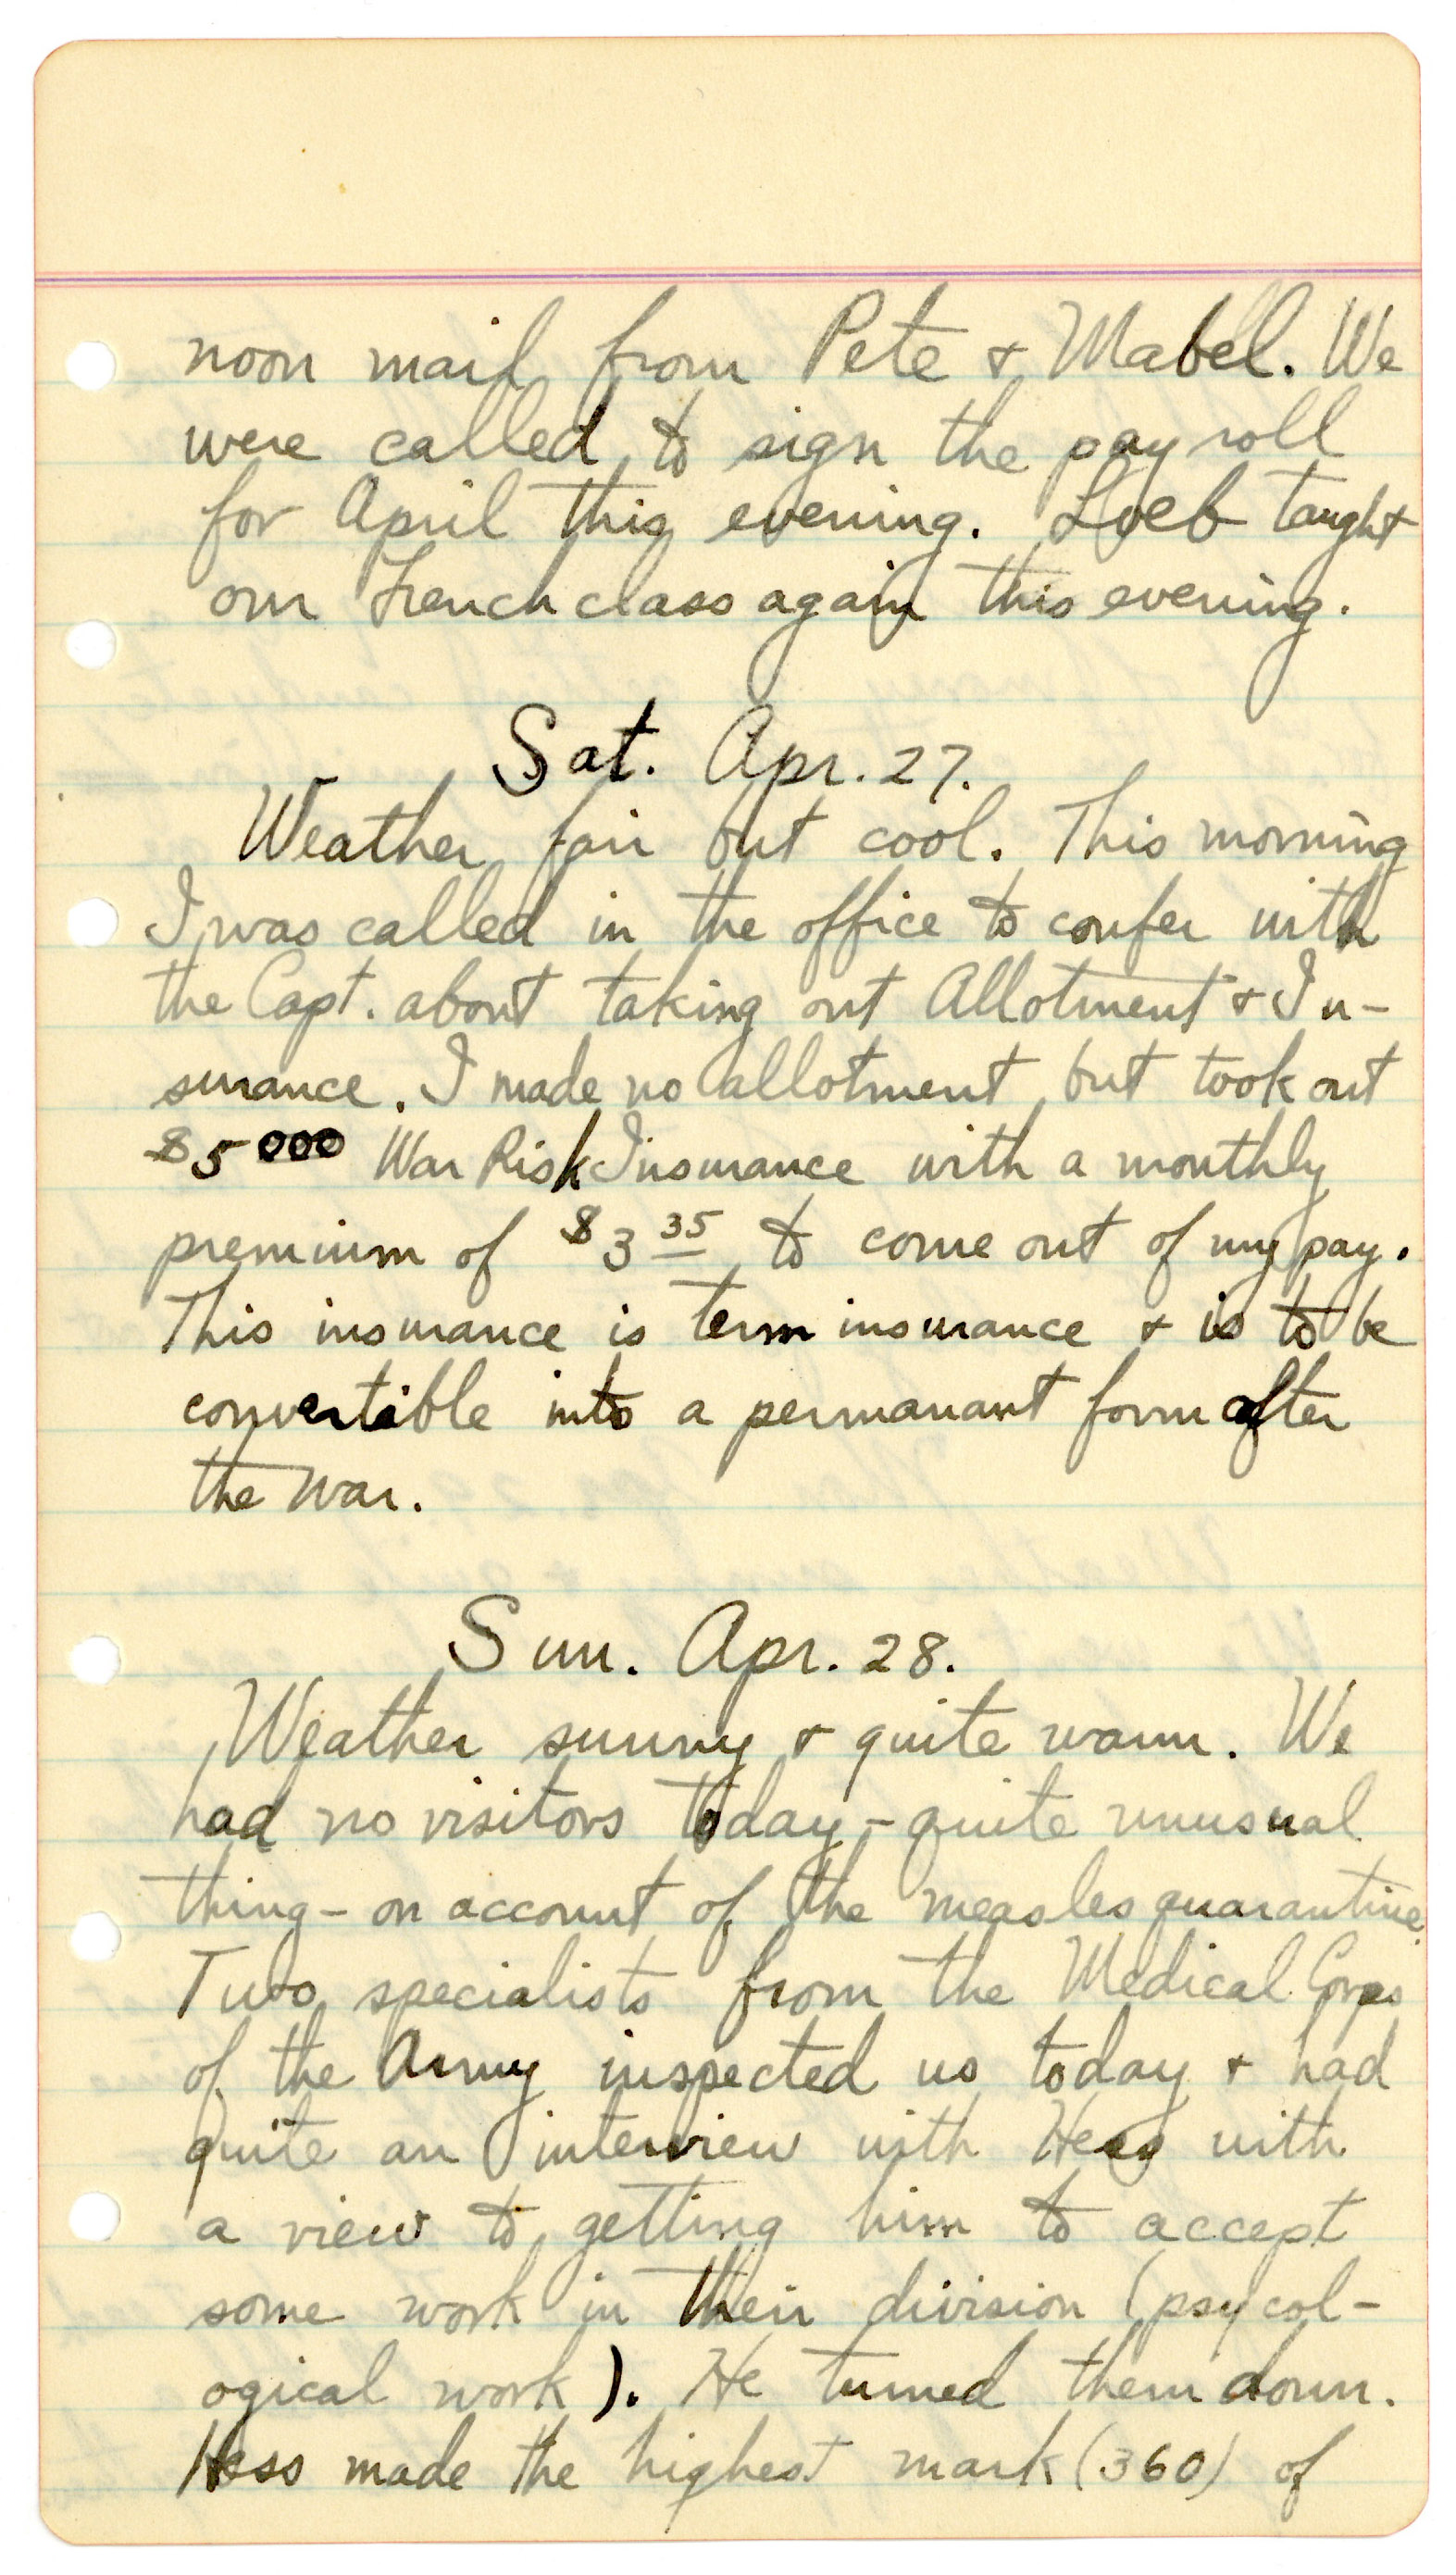 noon mail from Pete & Mabel. We
were called to sign the pay roll
for April this evening. Loeb taught
our French class again this evening.
Sat. Apr. 27.
Weather fair but cool. This morning
I was called in the office to confer with
the Capt. about taking out Allotment & In-
surance. I made no allotment but took out
$5000 War Risk Insurance with a monthly
premium of $3 35 to come out of my pay.
This insurance is term insurance & is to be
convertible into a permanant form after
the war.
Sun. Apr. 28.
Weather sunny & quite warm. We
had no visitors today - quite unusual
thing - on account of the measles quarantine.
Two specialists from the Medical Corps
of the Army inspected us today & had
quite an interview with Hess with
a view to getting him to accept
some work in their division (psycol-
ogical work). He turned them down.
Hess made the highest mark (360) of